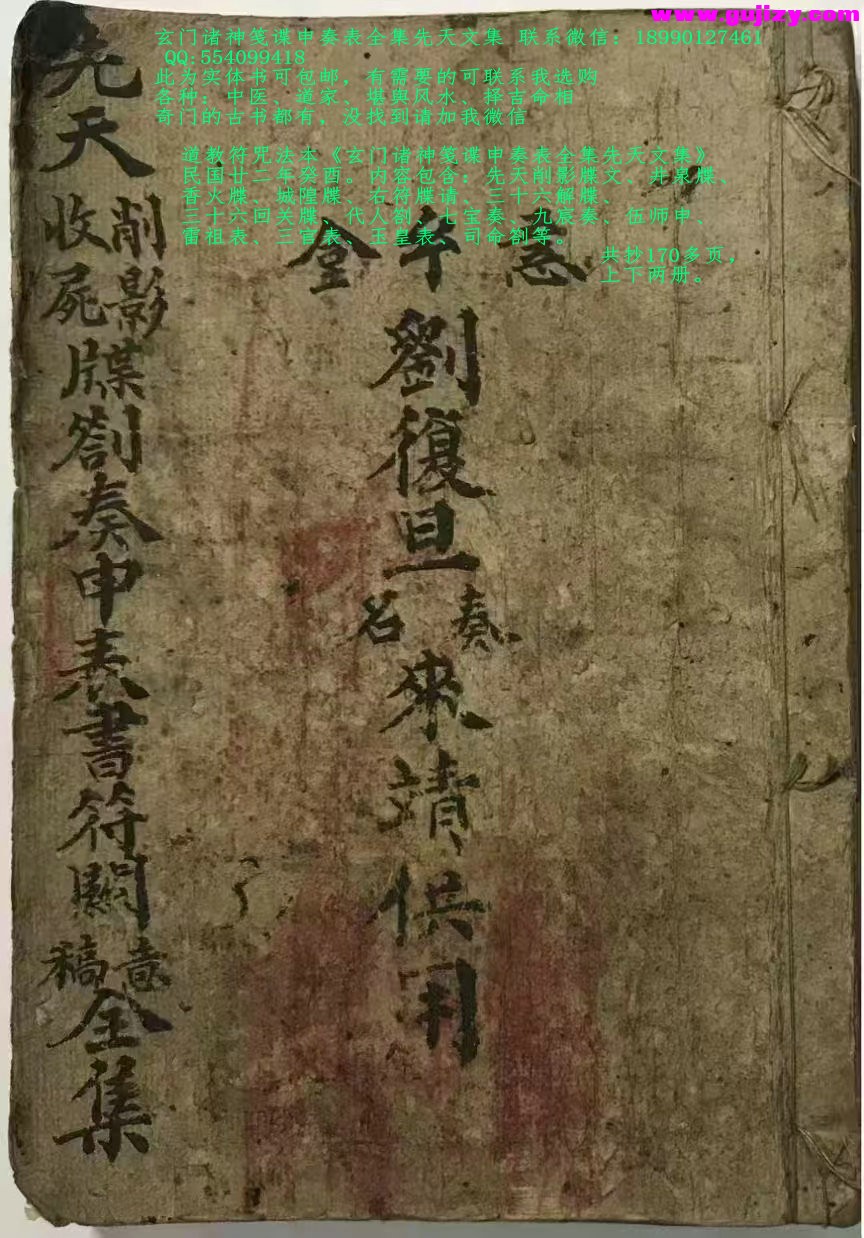 www.gujizy.com
玄门诸神笺谍申奏表全集先天文集 联系微信：18990127461
QQ:554099418
此为实体书可包邮，有需要的可联系我选购
各种：中医、道家、堪舆风水、择吉命相
奇门的古书都有，没找到请加我微信
道教符咒法本《玄门诸神笺谍申奏表全集先天文集》
民国廿二年癸酉。内容包含：先天削影牒文、井泉牒、
香火牒、城隍牒、右符牒请、三十六解牒、
三十六回关牒、代人劄、七宝奏、九宸奏、伍师申、
雷祖表、三官表、玉皇表、司命劄等。
共抄170多页，
上下两册。
劉復旦
奏名
來靖供用
先天
削影
收屍
牒劄奏申表書符關
意稿
全集